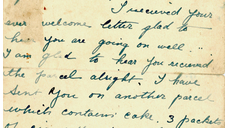 I received your
ever welcome letter glad to
hear you are going on well ..
I am glad to hear you received
the parcel alright. I have
sent you on another parcel
which contains cake. 3 packets